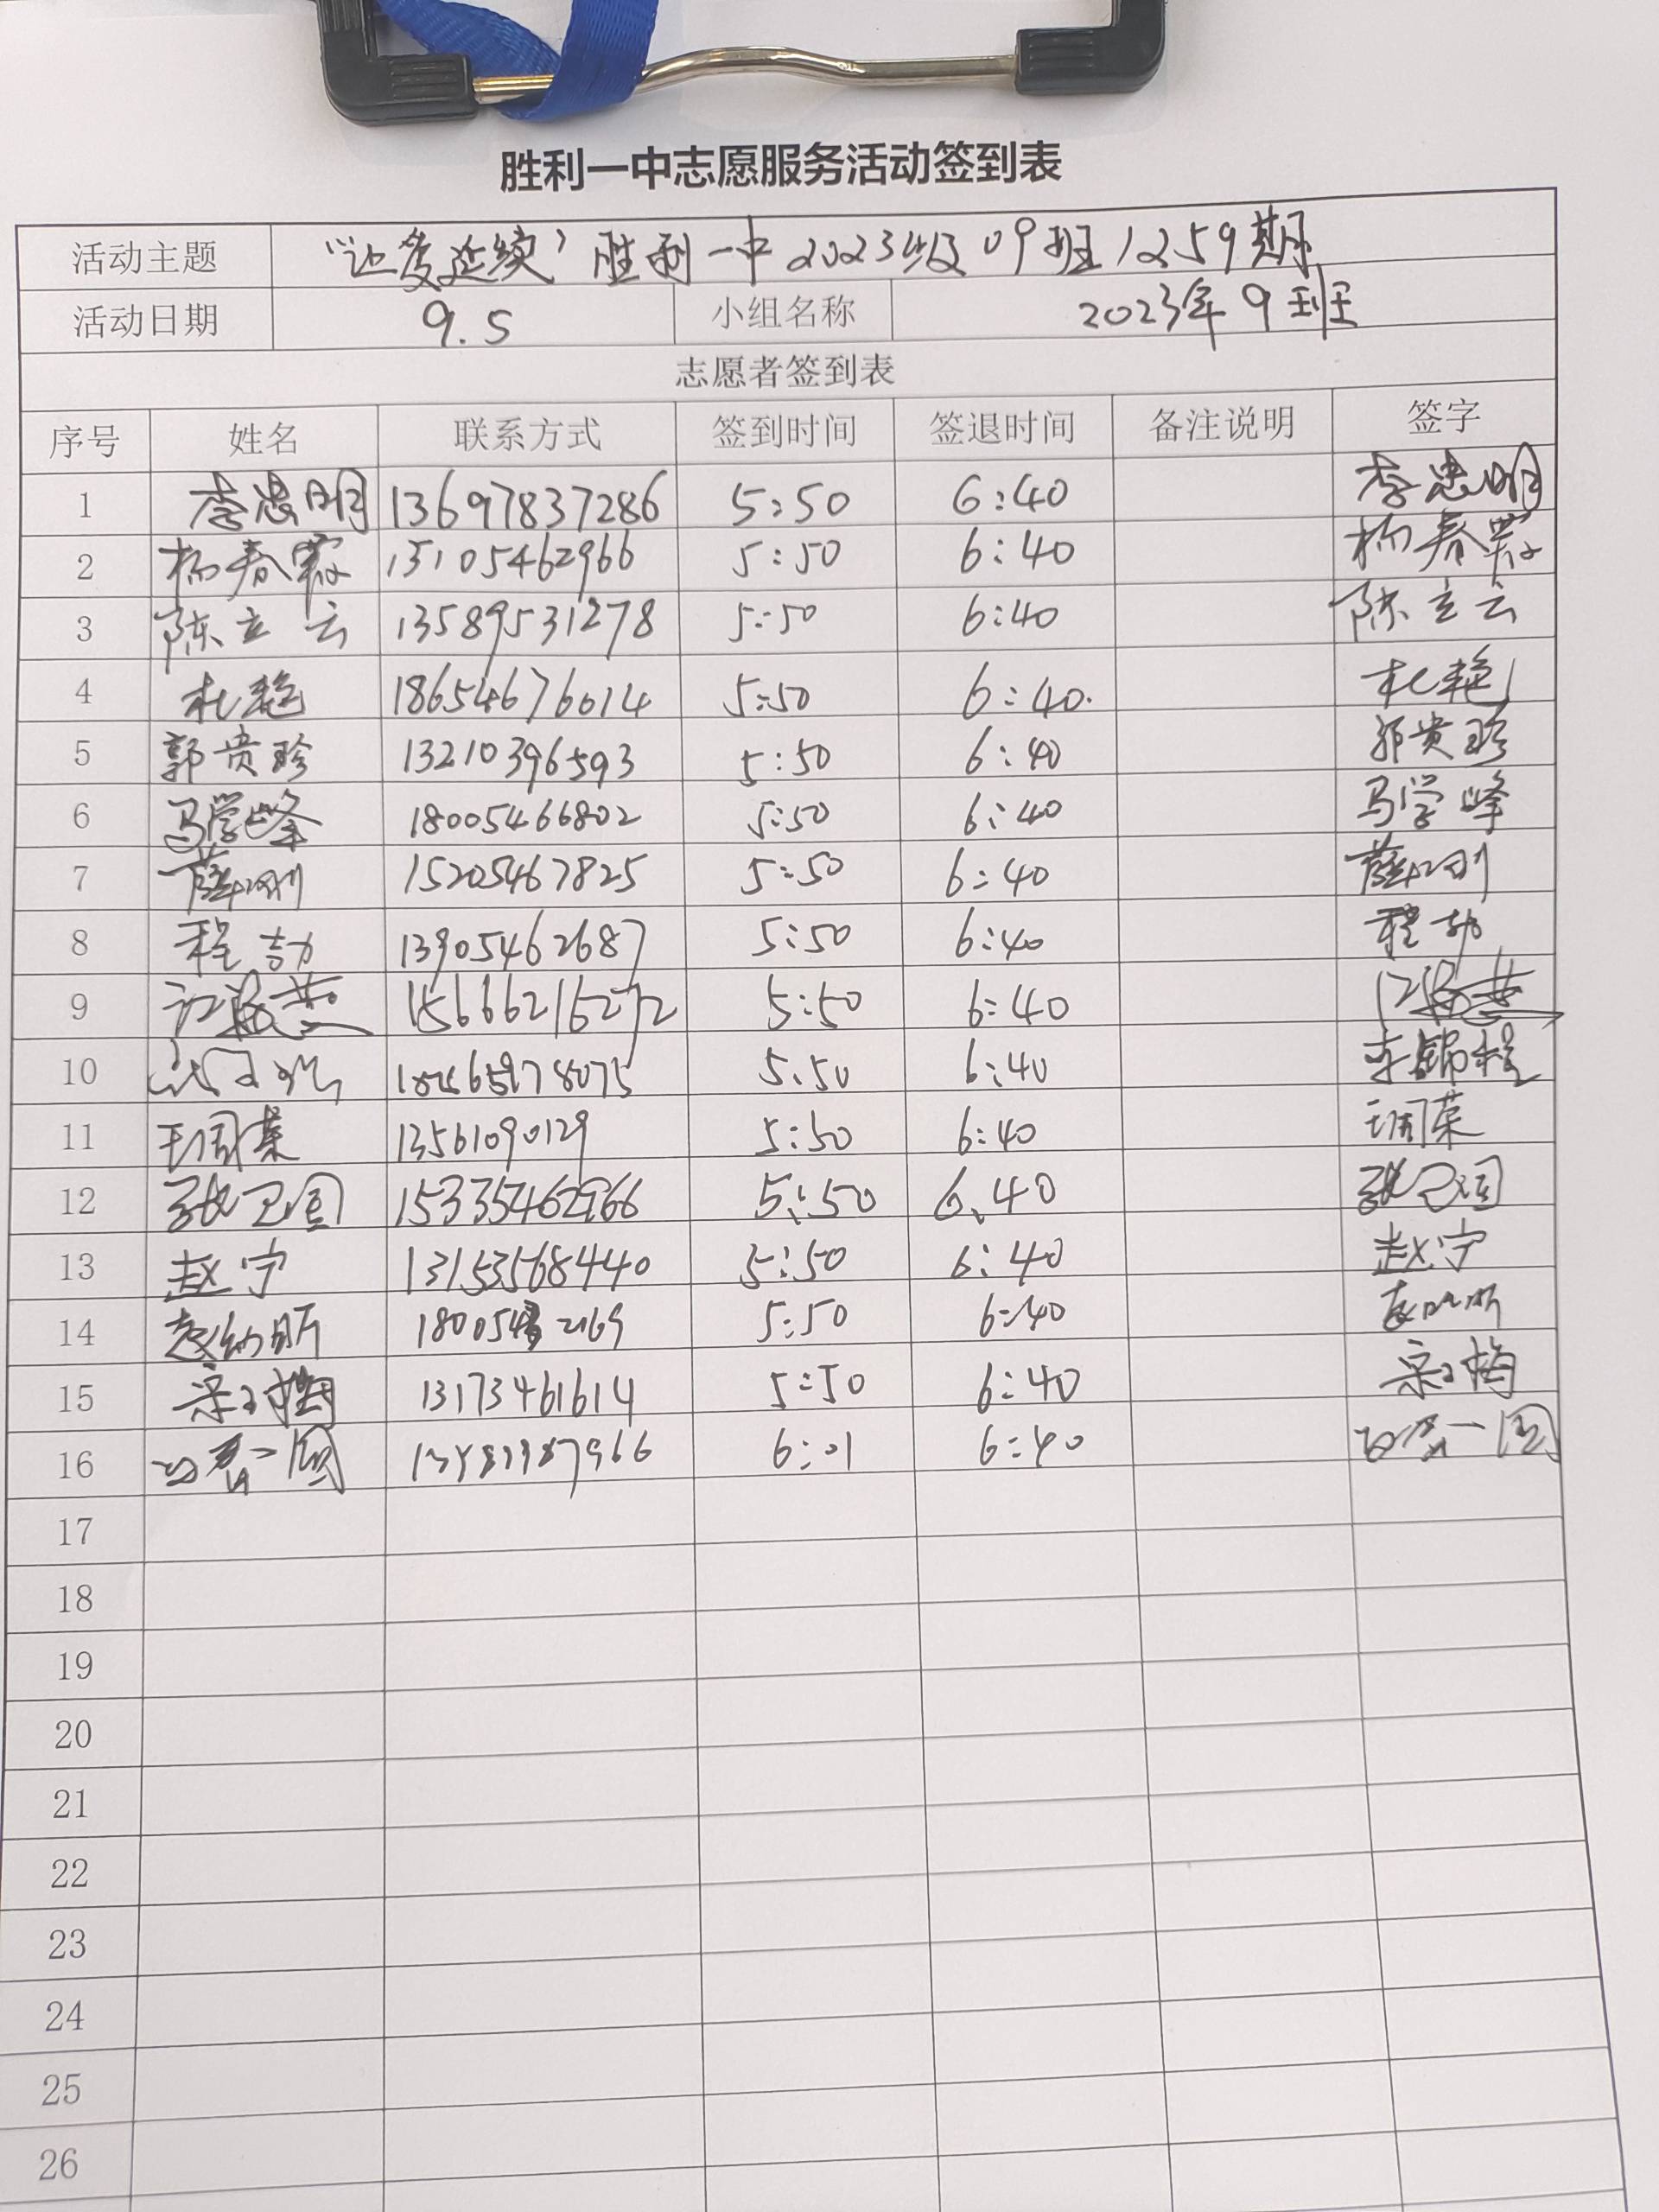 胜利一中志愿服务活动签到表
活动主题 “让爱延续”胜利一中2023级09班1259期
活动日期 9.5 小组名称 2023年9班
志愿者签到表
序号 姓名 联系方式 签到时间 签退时间 备注说明 签字
1 李忠明 13697837286 5:50 6:40 李忠明
2 杨春霞 15105462966 5:50 6:40 杨春霞
3 陈立云 13589531278 5:50 6:40 陈立云
4 杜艳 18654676014 5:50 6:40. 杜艳
5 郭贵珍 13210396593 5:50 6:40 郭贵珍
6 马学峰 18005466802 5:50 6:40 马学峰
7 薛刚 15205467825 5:50 6:40 薛刚
8 程劼 13905462687 5:50 6:40 程劼
9 江海燕 15666216272 5:50 6:40 江海燕
10 5:50 6:40 李锦程
11 王周荣 13561090129 5:50 6:40 王周荣
12 张卫国 15335462966 5:50 6:40 张卫国
13 赵宁 13153568440 5:50 6:40 赵宁
14 5:50 6:40
15 宋梅 13173461614 5:50 6:40 宋梅
16 6:01 6:40
17
18
19
20
21
22
23
24
25
26